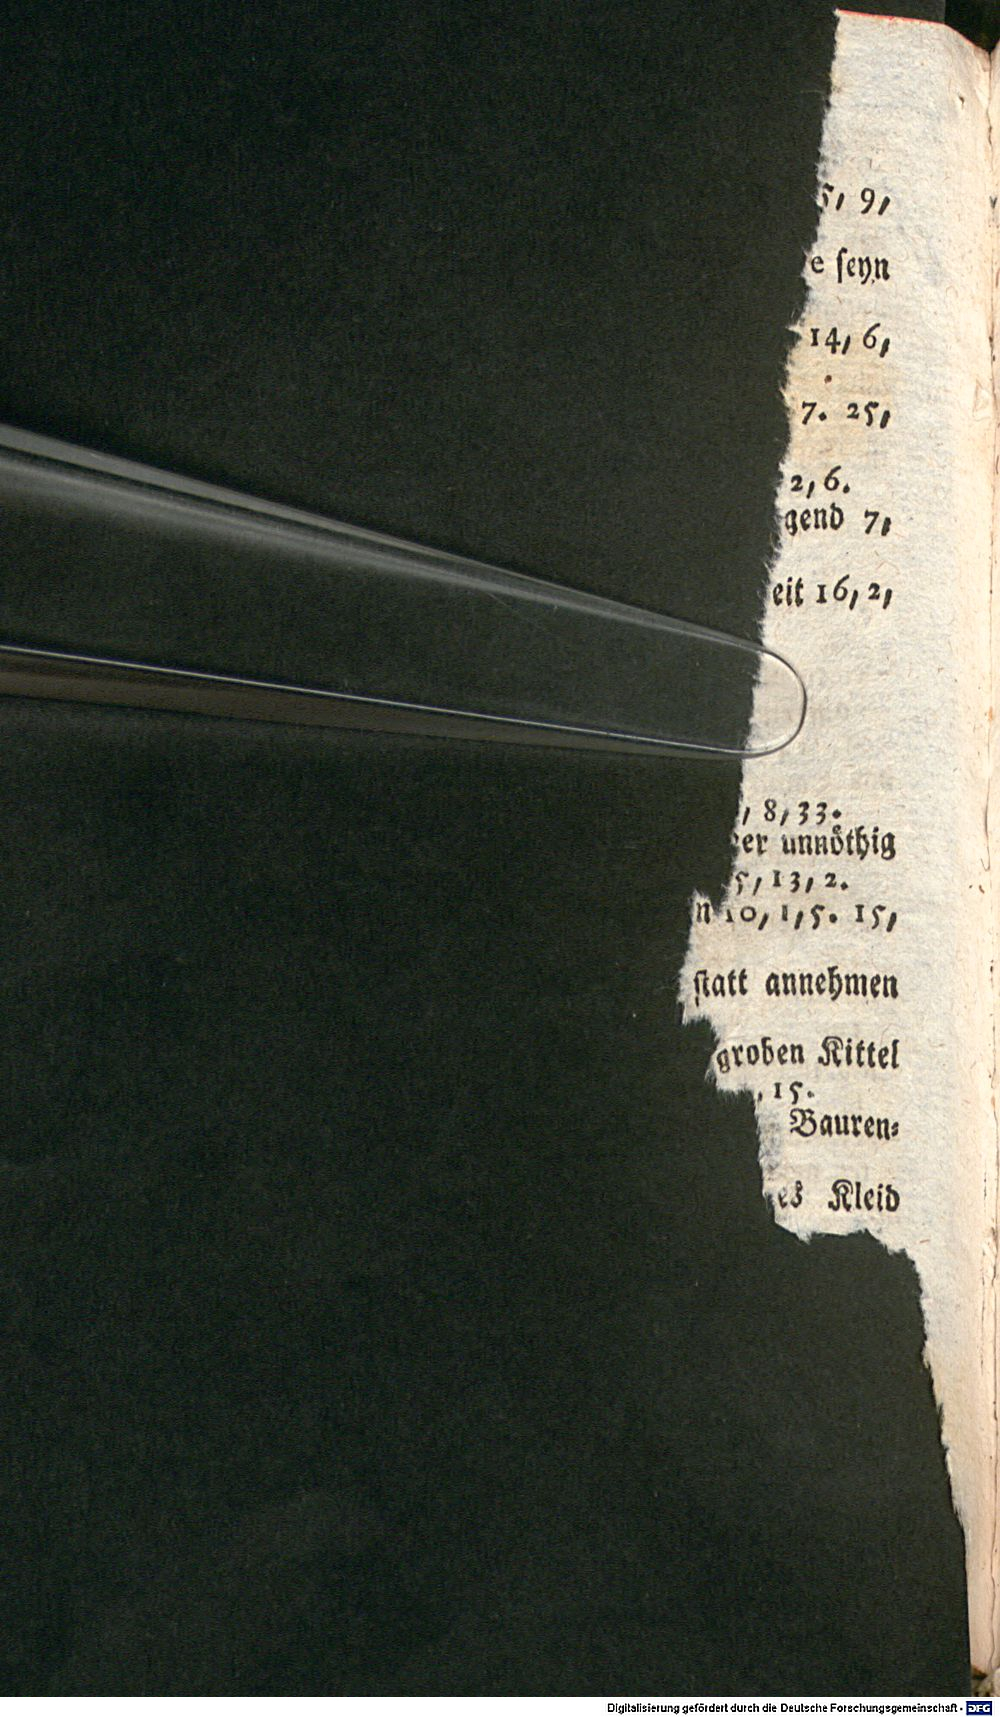 5, 9,
e ſeyn
14, 6,
7. 25,
2, 6.
gend 7,
eit 16, 2,
, 8, 33.
er unnöthig
5, 13, 2.
n 10, 1, 5. 15,
ſtatt annehmen
groben Kittel
, 15.
Bauren⸗
es Kleid
Digitalisierung gefördert durch die Deutsche Forschungsgemeinschaft - DFG